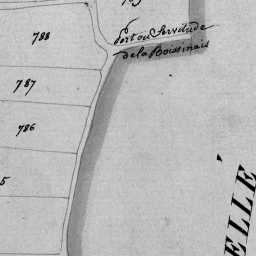 788
Port ou Servitude
de la Boissinais
787
786
5
ELLE